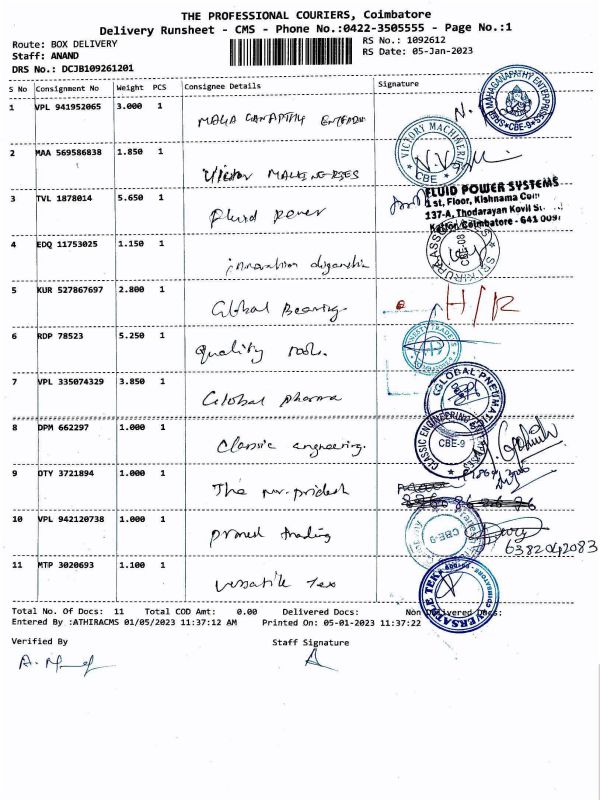 THE PROFESSIONAL COURIERS, Coimbatore
Delivery Runsheet - CMS - Phone No.:0422-3505555 - Page No.:1
Route: BOX DELIVERY
RS No.: 1092612
Staff: ANAND
RS Date: 05-Jan-2023
DRS No.: DCJB109261201
S No Consignment No Weight PCS Consignee Details Signature
1 VPL 941952065 3.000 1
MAHAGANAPATHY ENTERPRISES
CBE-9
2 MAA 569586838 1.850 1
VICTORY MACHINERIES
CBE
3 TVL 1878014 5.650 1 Fluid power
FLUID POWER SYSTEMS
1st, Floor, Kishnama
137-A, Thodarayan Kovil St
Kattoor, Coimbatore - 641 009
4 EDQ 11753025 1.150 1 innovation
CBE-08
5 KUR 527867697 2.800 1 Global Bearing H/R
6 RDP 78523 5.250 1 Quality tools.
7 VPL 335074329 3.850 1 Global pharma
GLOBAL PNEUMATI
8 DPM 662297 1.000 1 Classic engneering.
CLASSIC ENGINEERING ENTERPRISES
CBE-9
9 OTY 3721894 1.000 1 The
10 VPL 942120738 1.000 1 trading
CBE-9
6382042083
11 MTP 3020693 1.100 1 versatile Tex
VERSATILE TEK
Total No. Of Docs: 11 Total COD Amt: 0.00 Delivered Docs: Non Delivered Docs:
Entered By :ATHIRACMS 01/05/2023 11:37:12 AM Printed On: 05-01-2023 11:37:22
Verified By Staff Signature